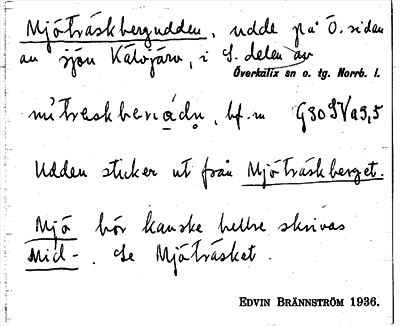 Mjöträskbergudden, udde på Ö. sidan
av sjön Kälvjärv, i S. delen av
Överkalix sn o. tg. Norrb. l.
bf. m G80SVa9,5
Udden sticker ut från Mjöträskberget.
Mjö bör kanske hellre skrivas
Mid-. Se Mjöträsket.
EDVIN BRÄNNSTRÖM 1936.